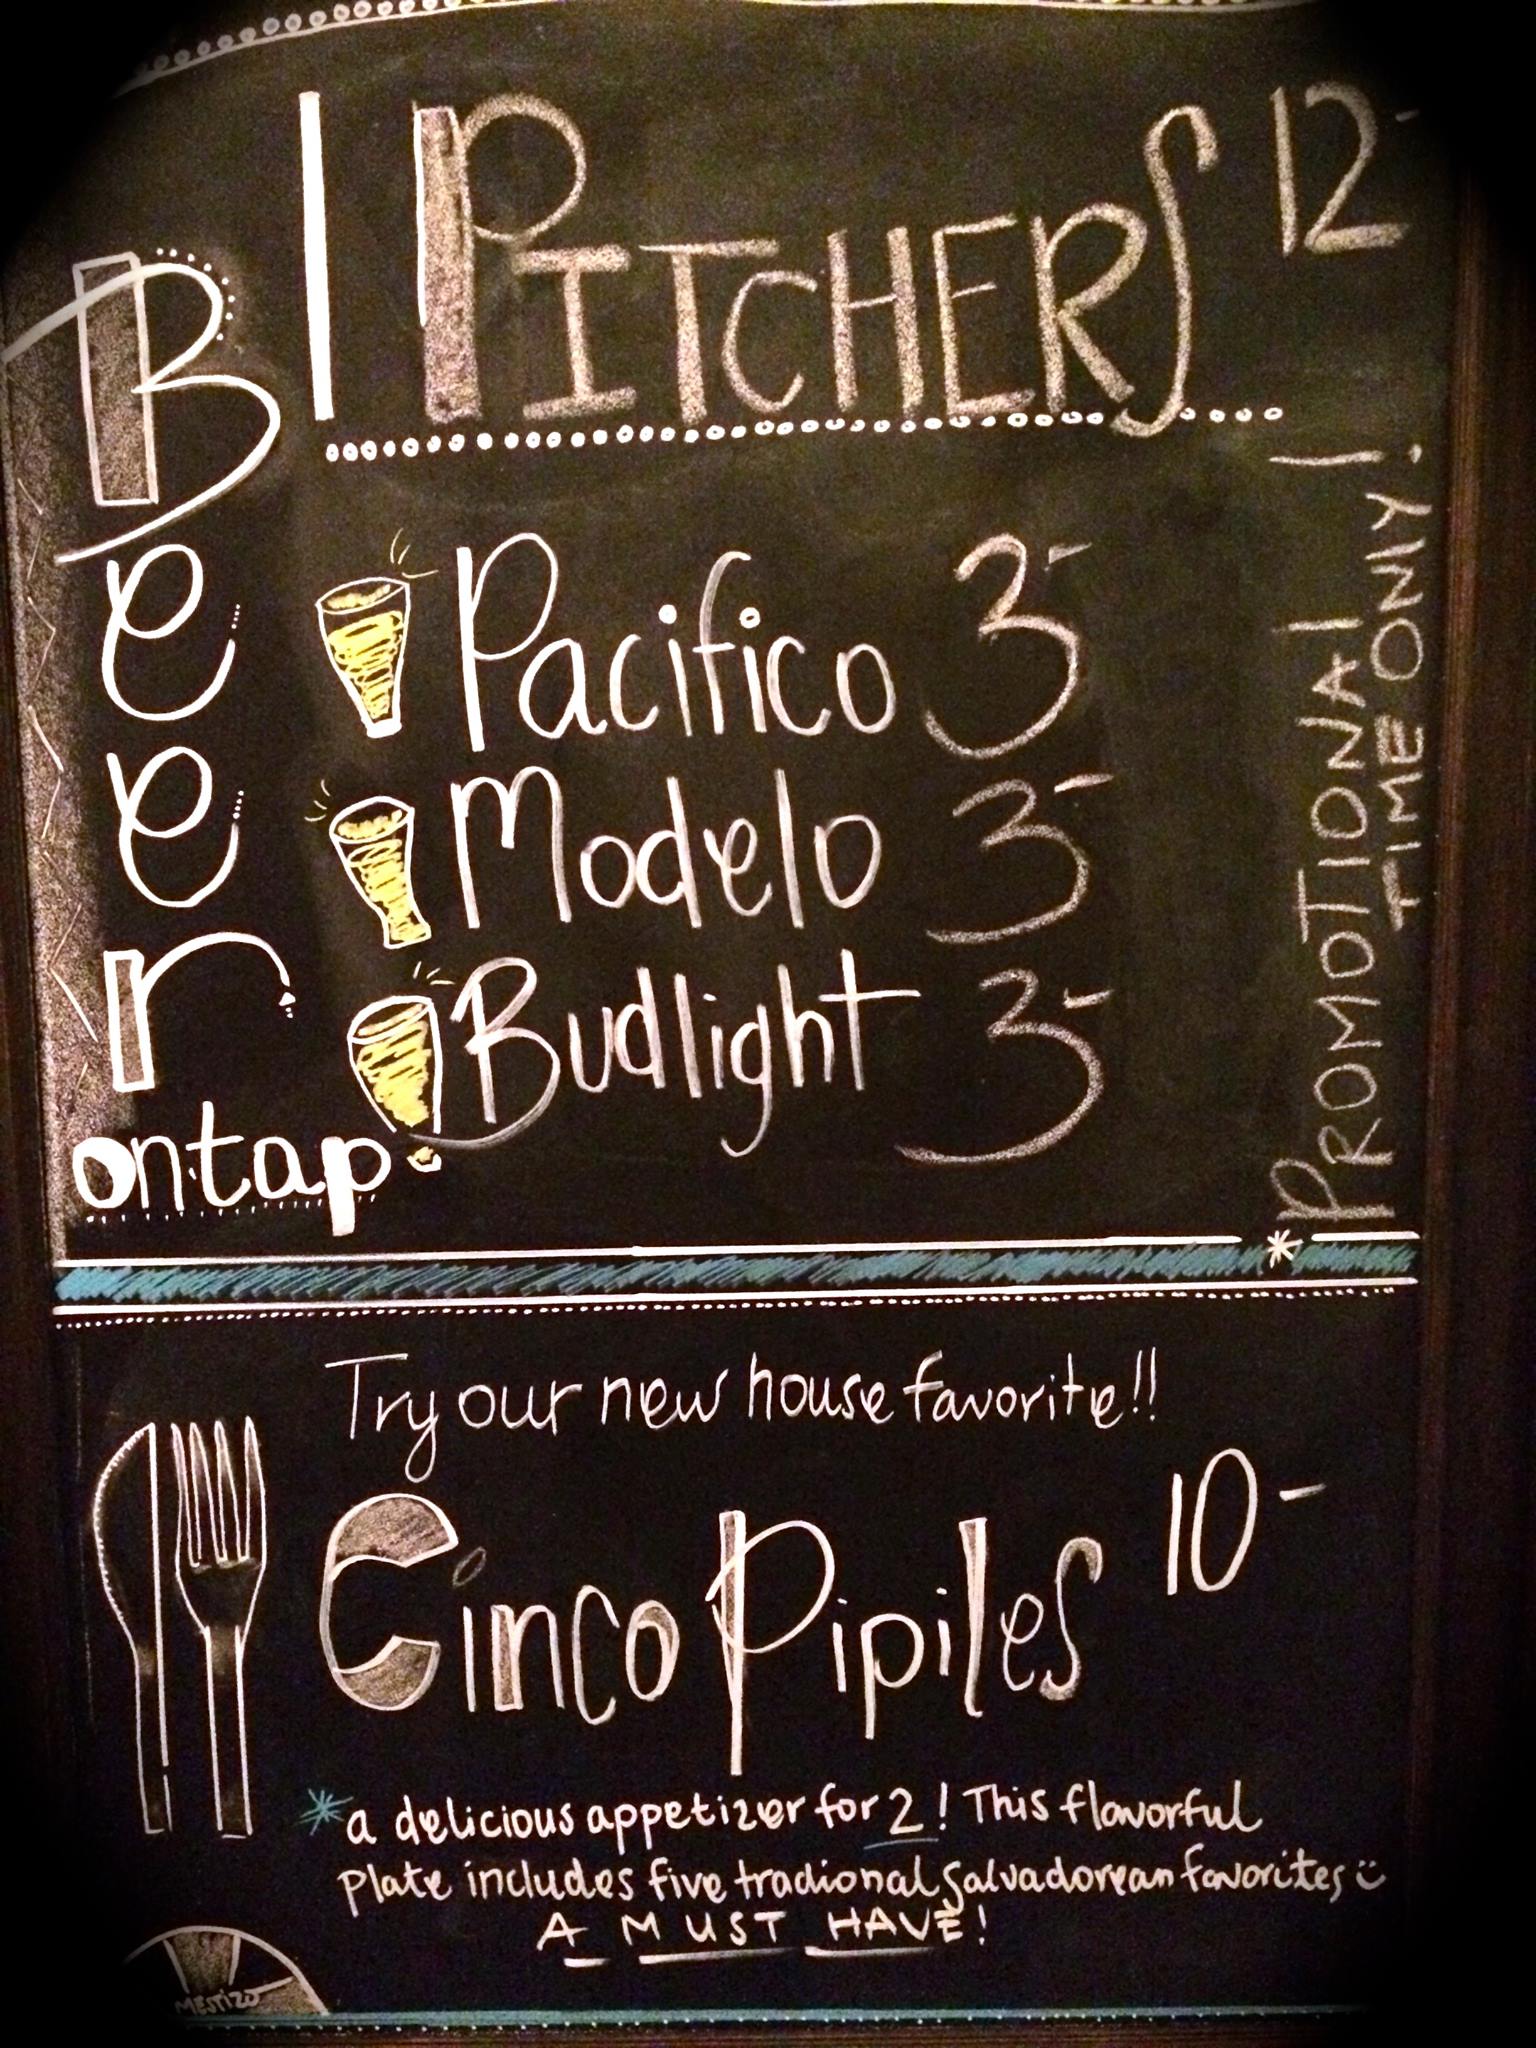 Beer
on tap!
PITCHERS 12-
Pacifico 3-
Modelo 3-
Budlight 3-
*PROMOTIONAL
TIME ONLY!
Try our new house favorite!!
Cinco Pipiles 10-
*a delicious appetizer for 2! This flavorful
plate includes five tradional Salvadorean favorites
A MUST HAVE!
MESTIZO